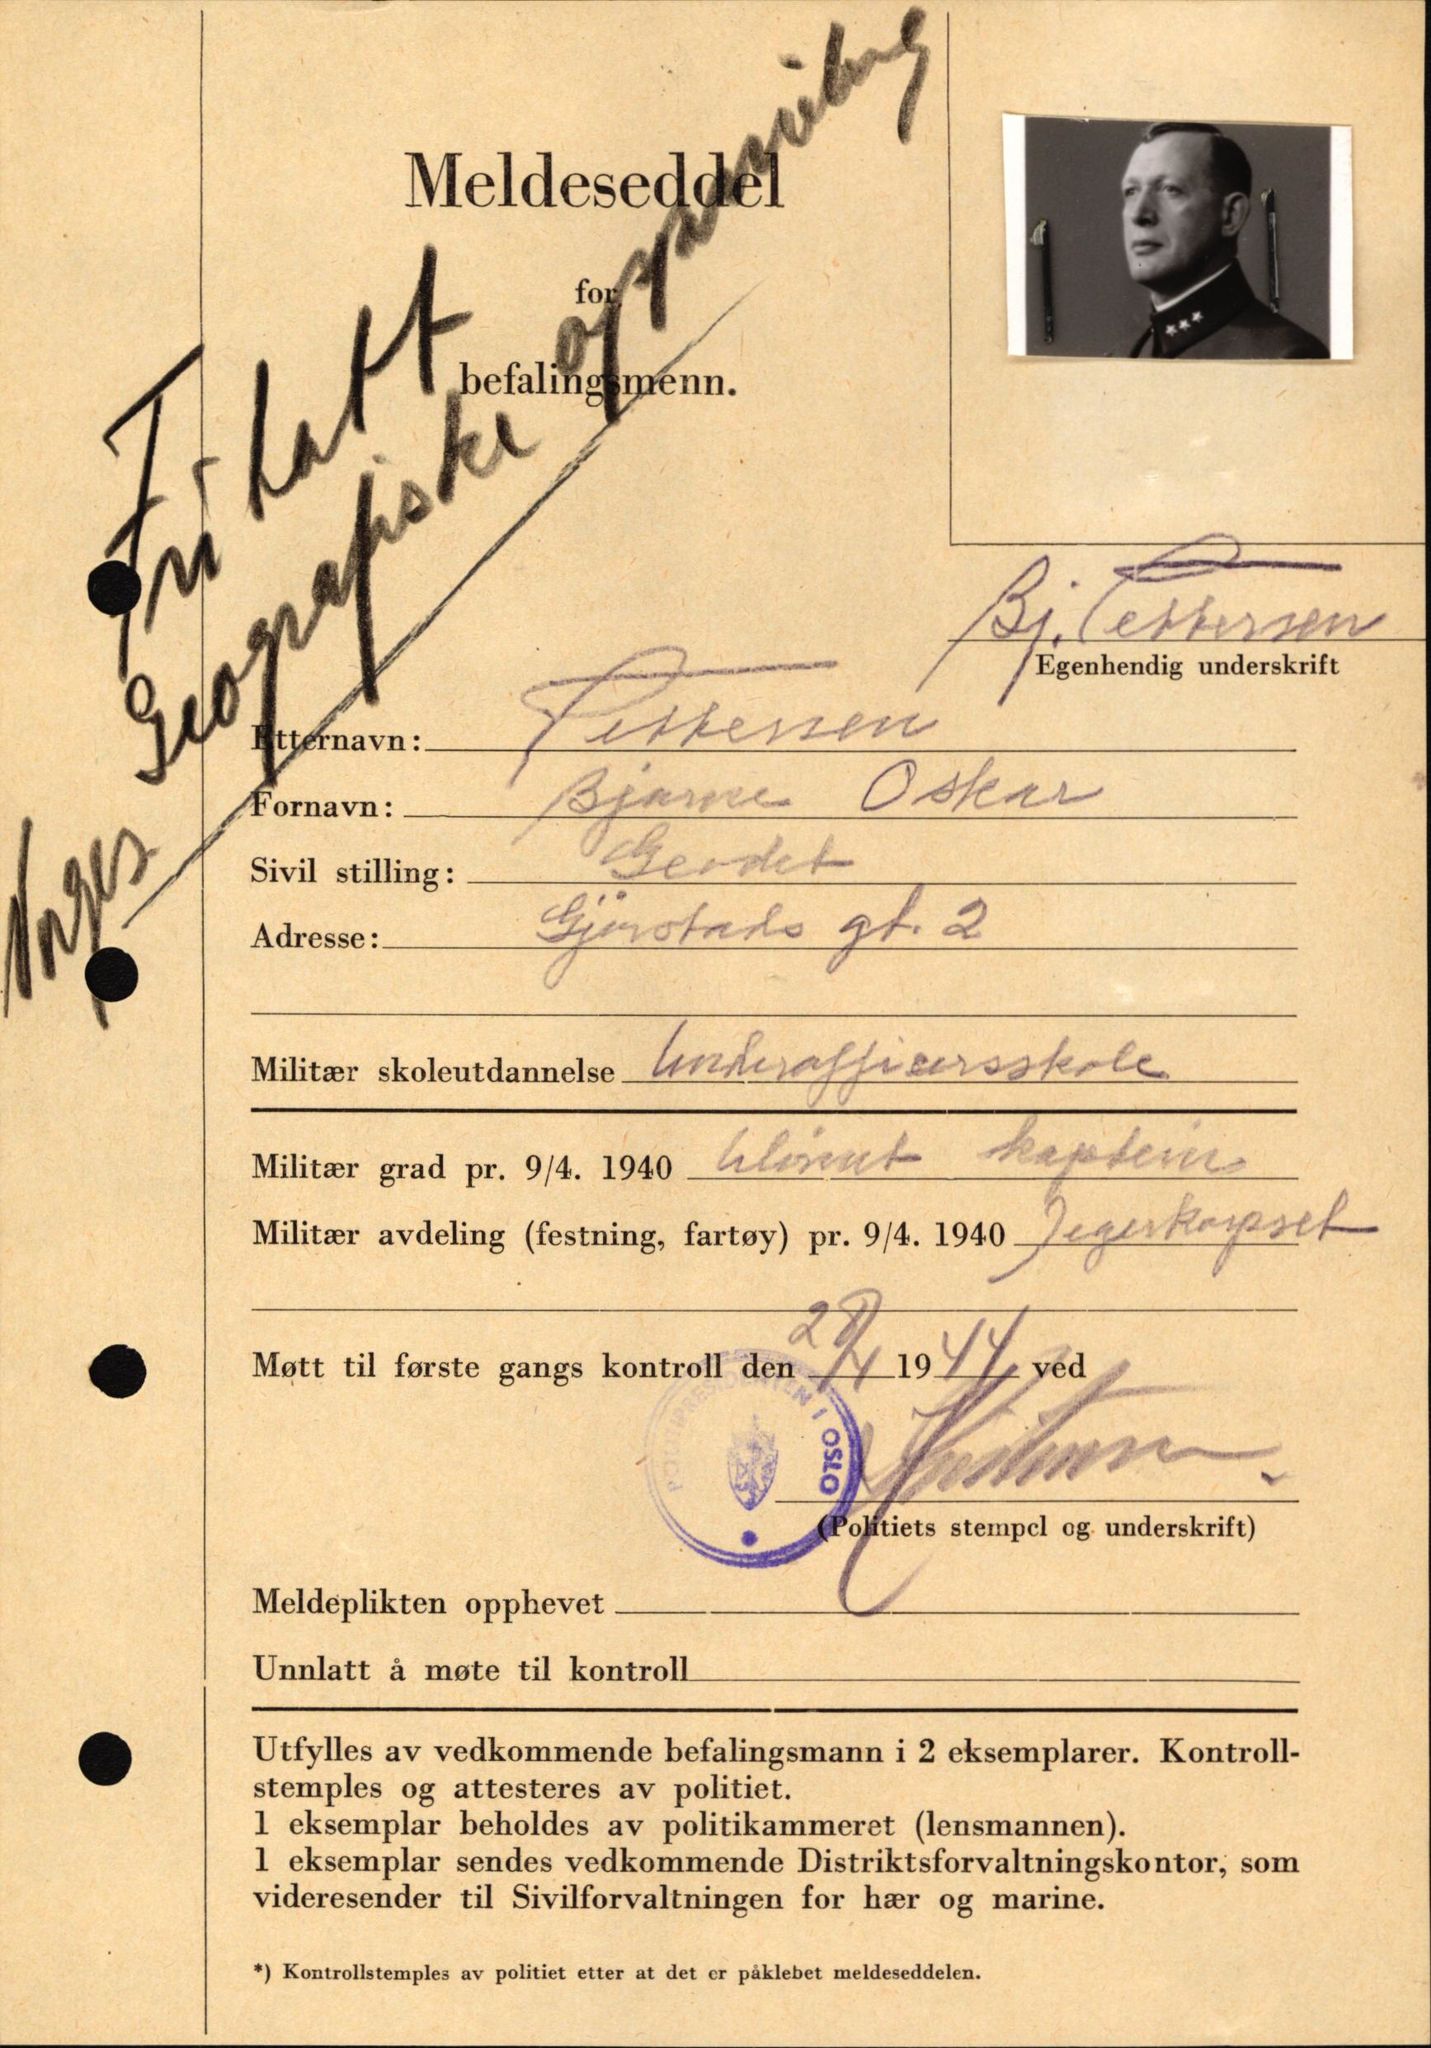 Meldeseddel
for
befalingsmenn.
Fritatt
Norges Geografiske oppmåling
Bj. Pettersen
Egenhendig underskrift
Etternavn: Pettersen
Fornavn: Bjarne Oskar
Sivil stilling: Geodet
Adresse: Gjörstads gt. 2
Militær skoleutdannelse Underofficersskole
Militær grad pr. 9/4. 1940 Ulönnet kaptein
Militær avdeling (festning, fartøy) pr. 9/4. 1940 Jegerkorpset
Møtt til første gangs kontroll den 1944 ved
POLITIPRESIDENTEN I OSLO
(Politiets stempel og underskrift)
Meldeplikten opphevet
Unnlatt å møte til kontroll
Utfylles av vedkommende befalingsmann i 2 eksemplarer. Kontroll-
stemples og attesteres av politiet.
1 eksemplar beholdes av politikammeret (lensmannen).
1 eksemplar sendes vedkommende Distriktsforvaltningskontor, som
videresender til Sivilforvaltningen for hær og marine.
*) Kontrollstemples av politiet etter at det er påklebet meldeseddelen.